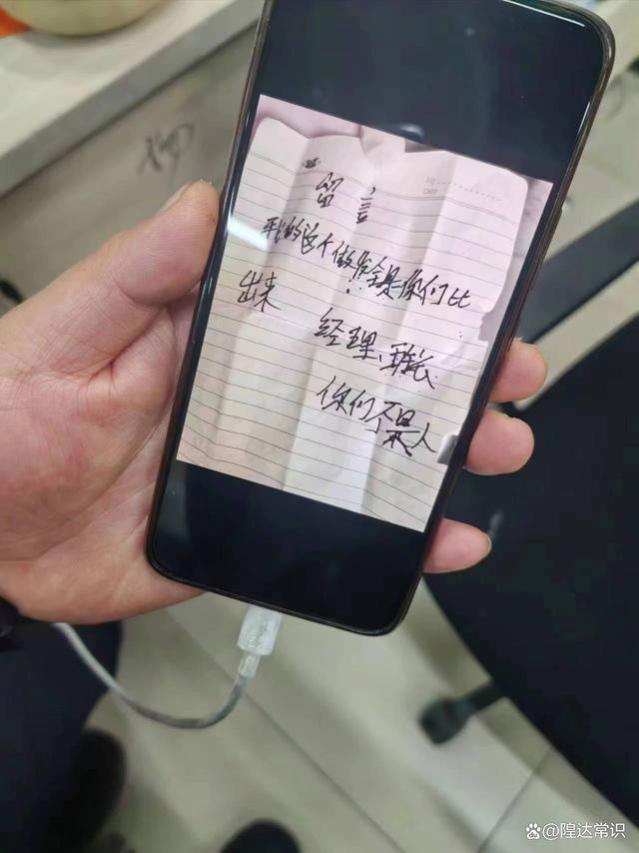 留言
我的这个做法全是你们比
出来 经理、班长
你们不是人
@隍达常识